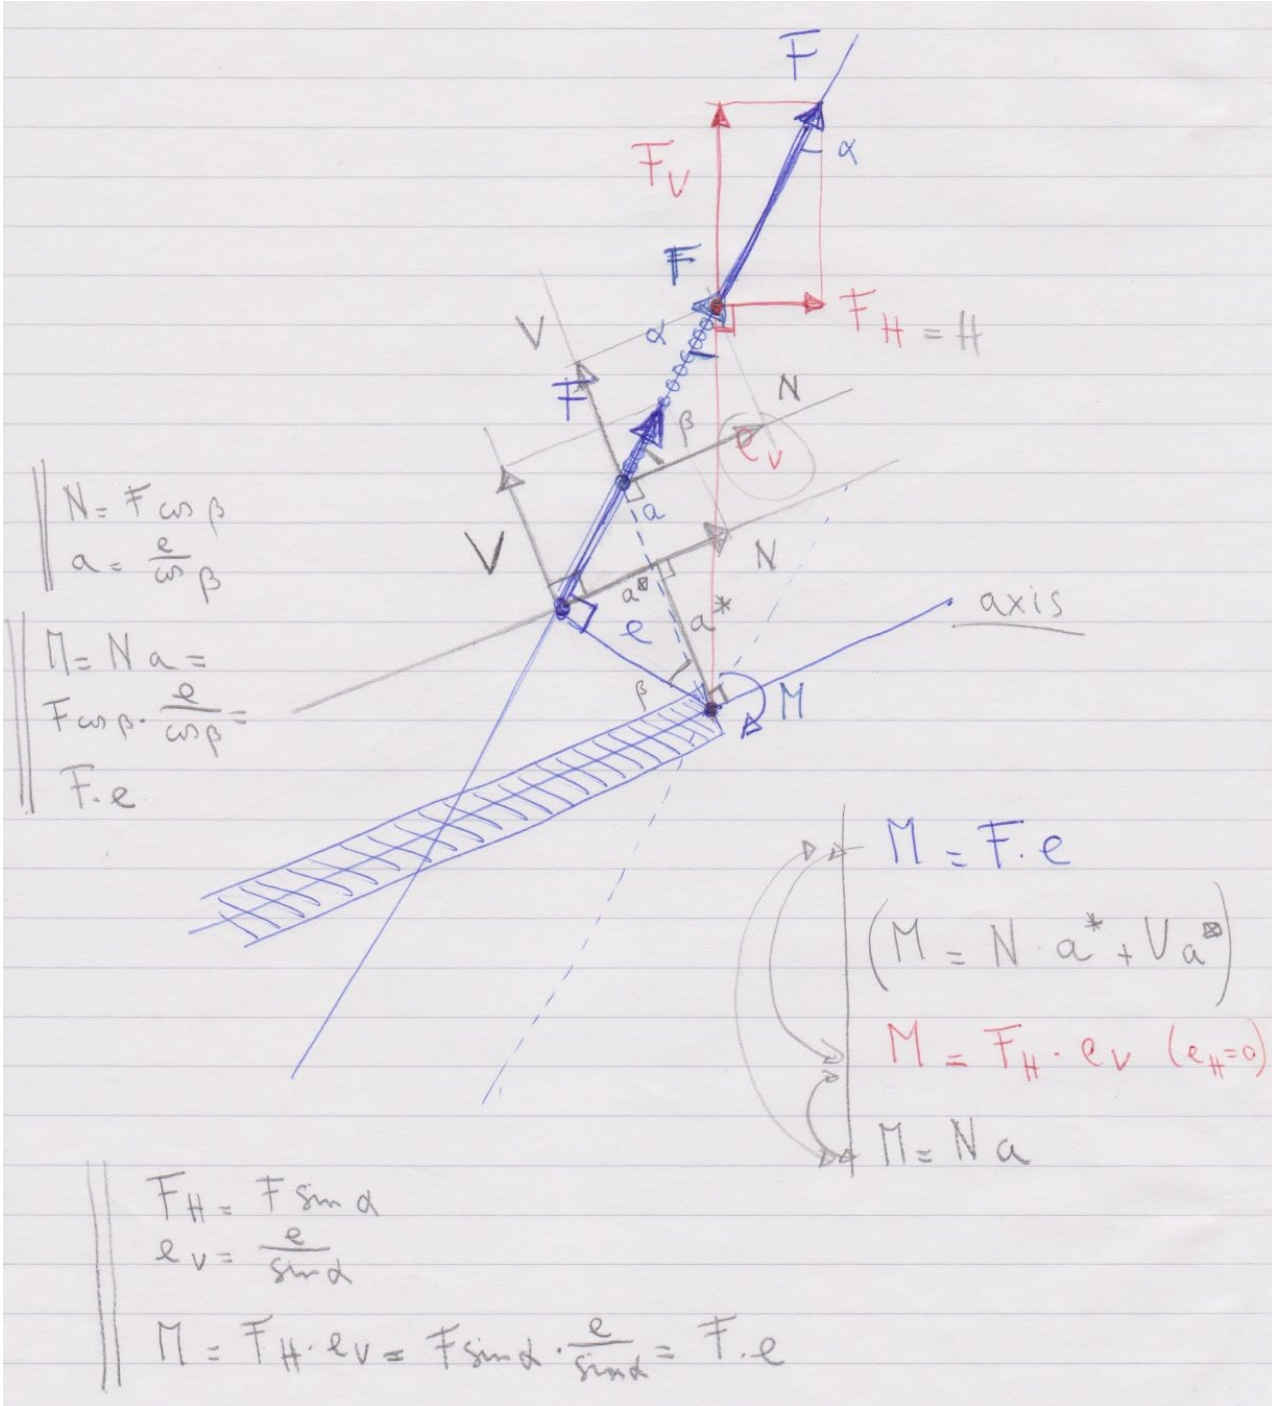 F
α
F_V
F
α
F_H = H
V
F
N
β
e_V
a
V
N
N = F cos β
a = e / cos β
a^⊠
a*
e
axis
β
M
M = N a =
F cos β · e / cos β =
F · e
M = F · e
(M = N · a* + V a^⊠)
M = F_H · e_V (e_H=0)
M = N a
F_H = F sin α
e_V = e / sin α
M = F_H · e_V = F sin α · e / sin α = F · e